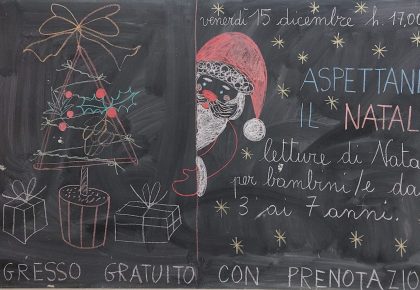 venerdì 15 dicembre h. 17,00
ASPETTAN
IL NATAL
letture di Nata
per bambini/e da
3 ai 7 anni.
GRESSO GRATUITO CON PRENOTAZIO